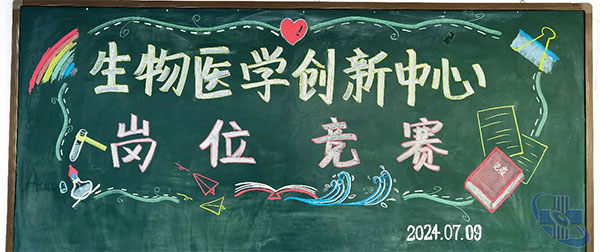 生物医学创新中心
岗位竞赛
2024.07.09